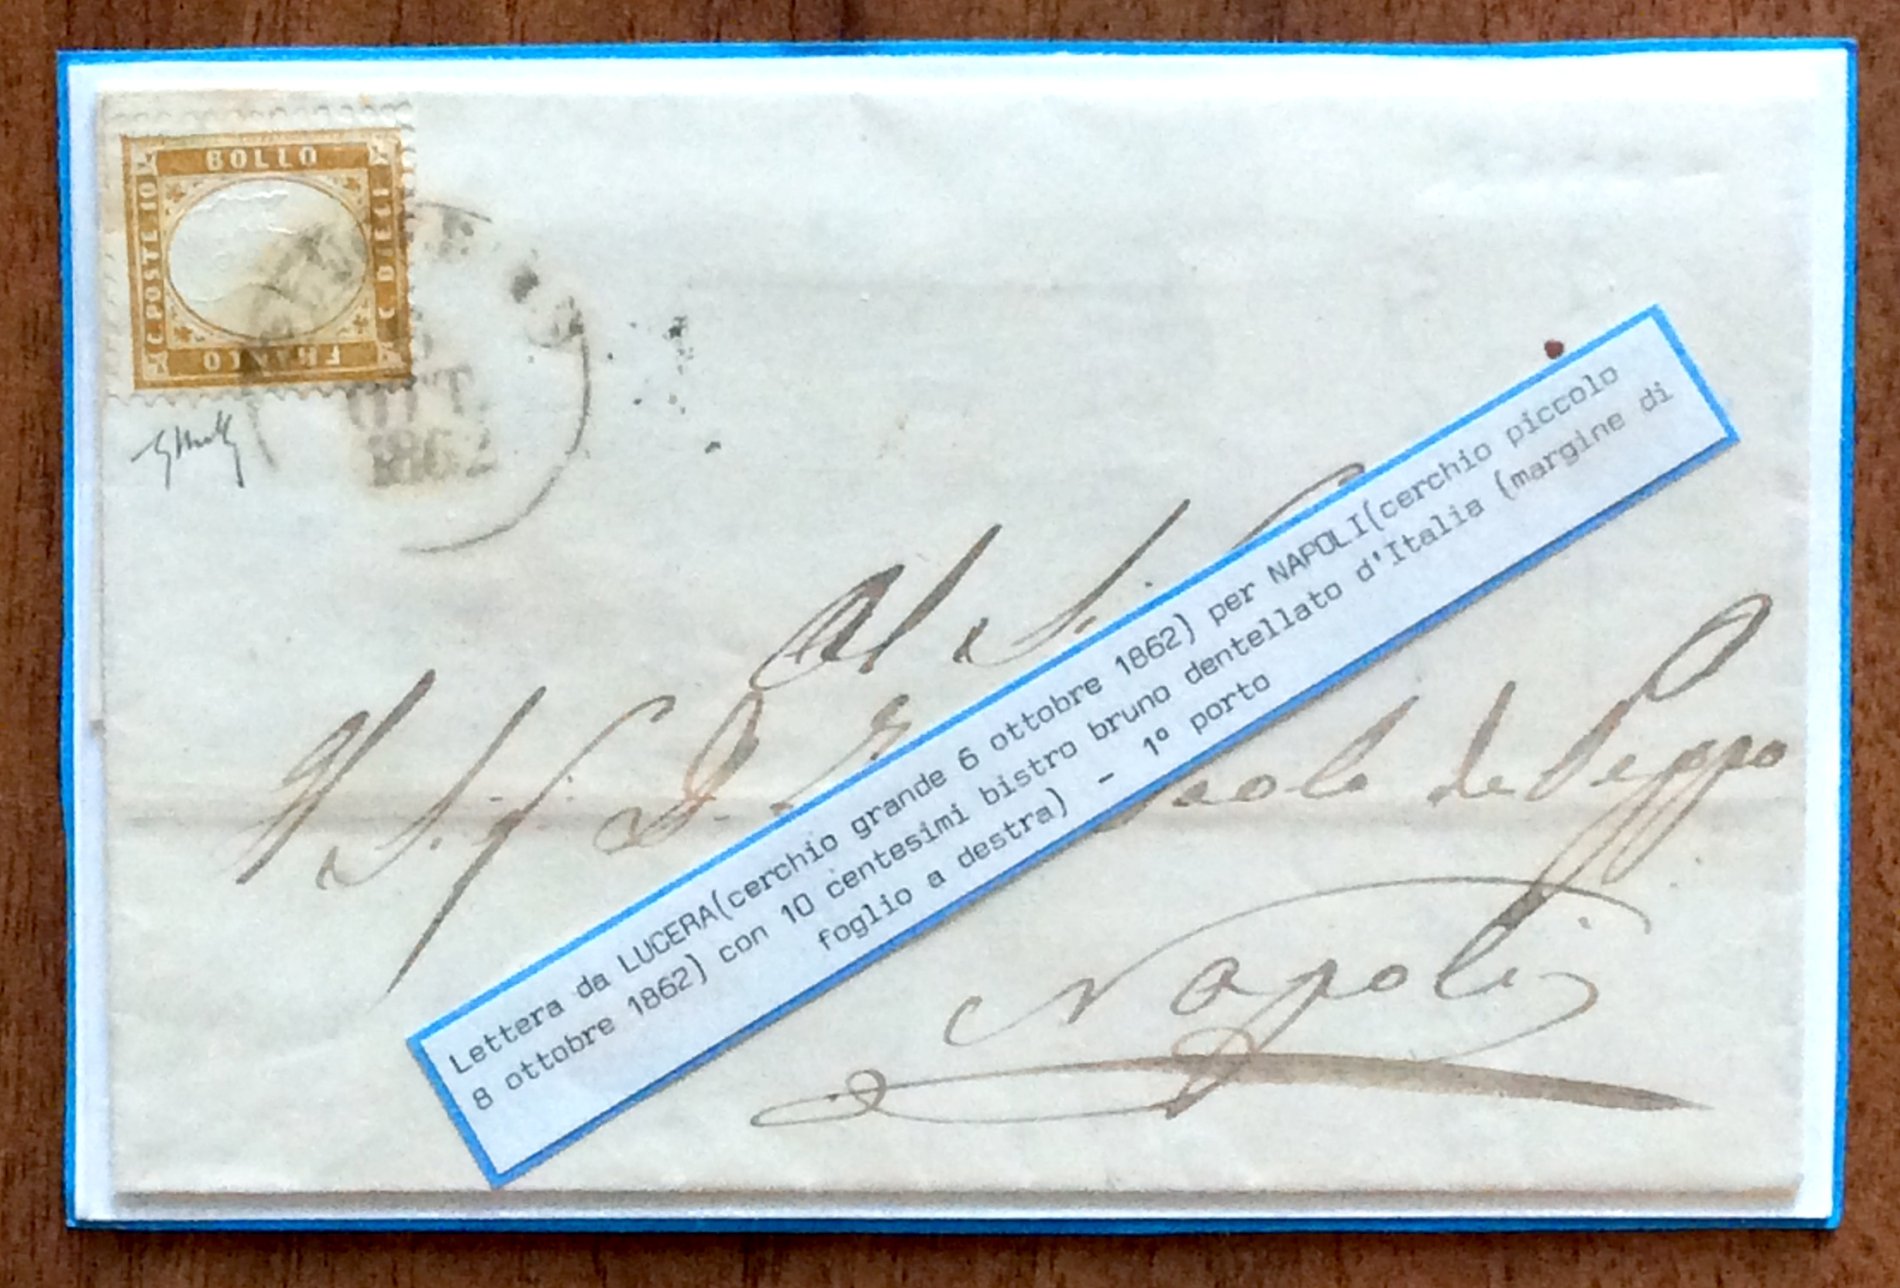 BOLLO
C. POSTE 10
C DIECI
FRANCO
6
OTT.
1862
Al S.
D.
Paolo de Peppo
Napoli
Lettera da LUCERA(cerchio grande 6 ottobre 1862) per NAPOLI(cerchio piccolo
8 ottobre 1862) con 10 centesimi bistro bruno dentellato d'Italia (margine di
foglio a destra) - 1º porto